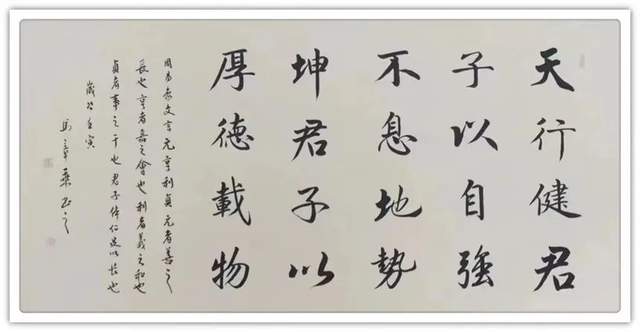 天行健君
子以自強
不息地勢
坤君子以
厚德載物
周易文言元亨利貞元者善之
長也亨者嘉之會也利者義之和也
貞者事之干也君子体仁足以也
歲次壬寅